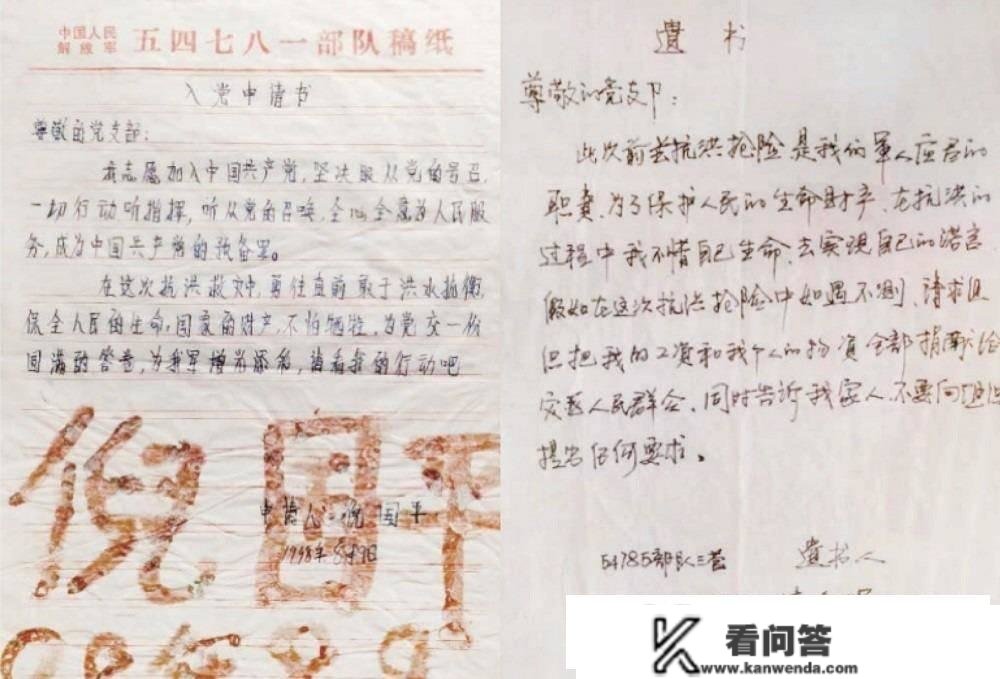 中国人民
解放军 五四七八一部队稿纸
入党申请书
尊敬的党支部：
我志愿加入中国共产党，坚决服从党的号召，
一切行动听指挥，听从党的召唤，全心全意为人民服
务，成为中国共产党的预备军。
在这次抗洪救灾中，勇往直前敢于洪水抗衡，
保全人民的生命，国家的财产，不怕牺牲，为党交一份
回满的答卷，为我军增光添彩，请看我的行动吧
倪国平
申请人：倪国平
1998年8月9日
遺书
尊敬的党支部：
此次前去抗洪抢险是我们军人应尽的
职责、为了保护人民的生命财产、在抗洪的
过程中我不惜自己生命、去实现自己的诺言
假如在这次抗洪抢险中如遇不测、请求组
织把我的工资和我个人的物资全部捐献给
灾区人民群众、同时告诉我家人、不要向组织
提出任何要求。
54785部队三营
遺书人
看问答
www.kanwenda.com